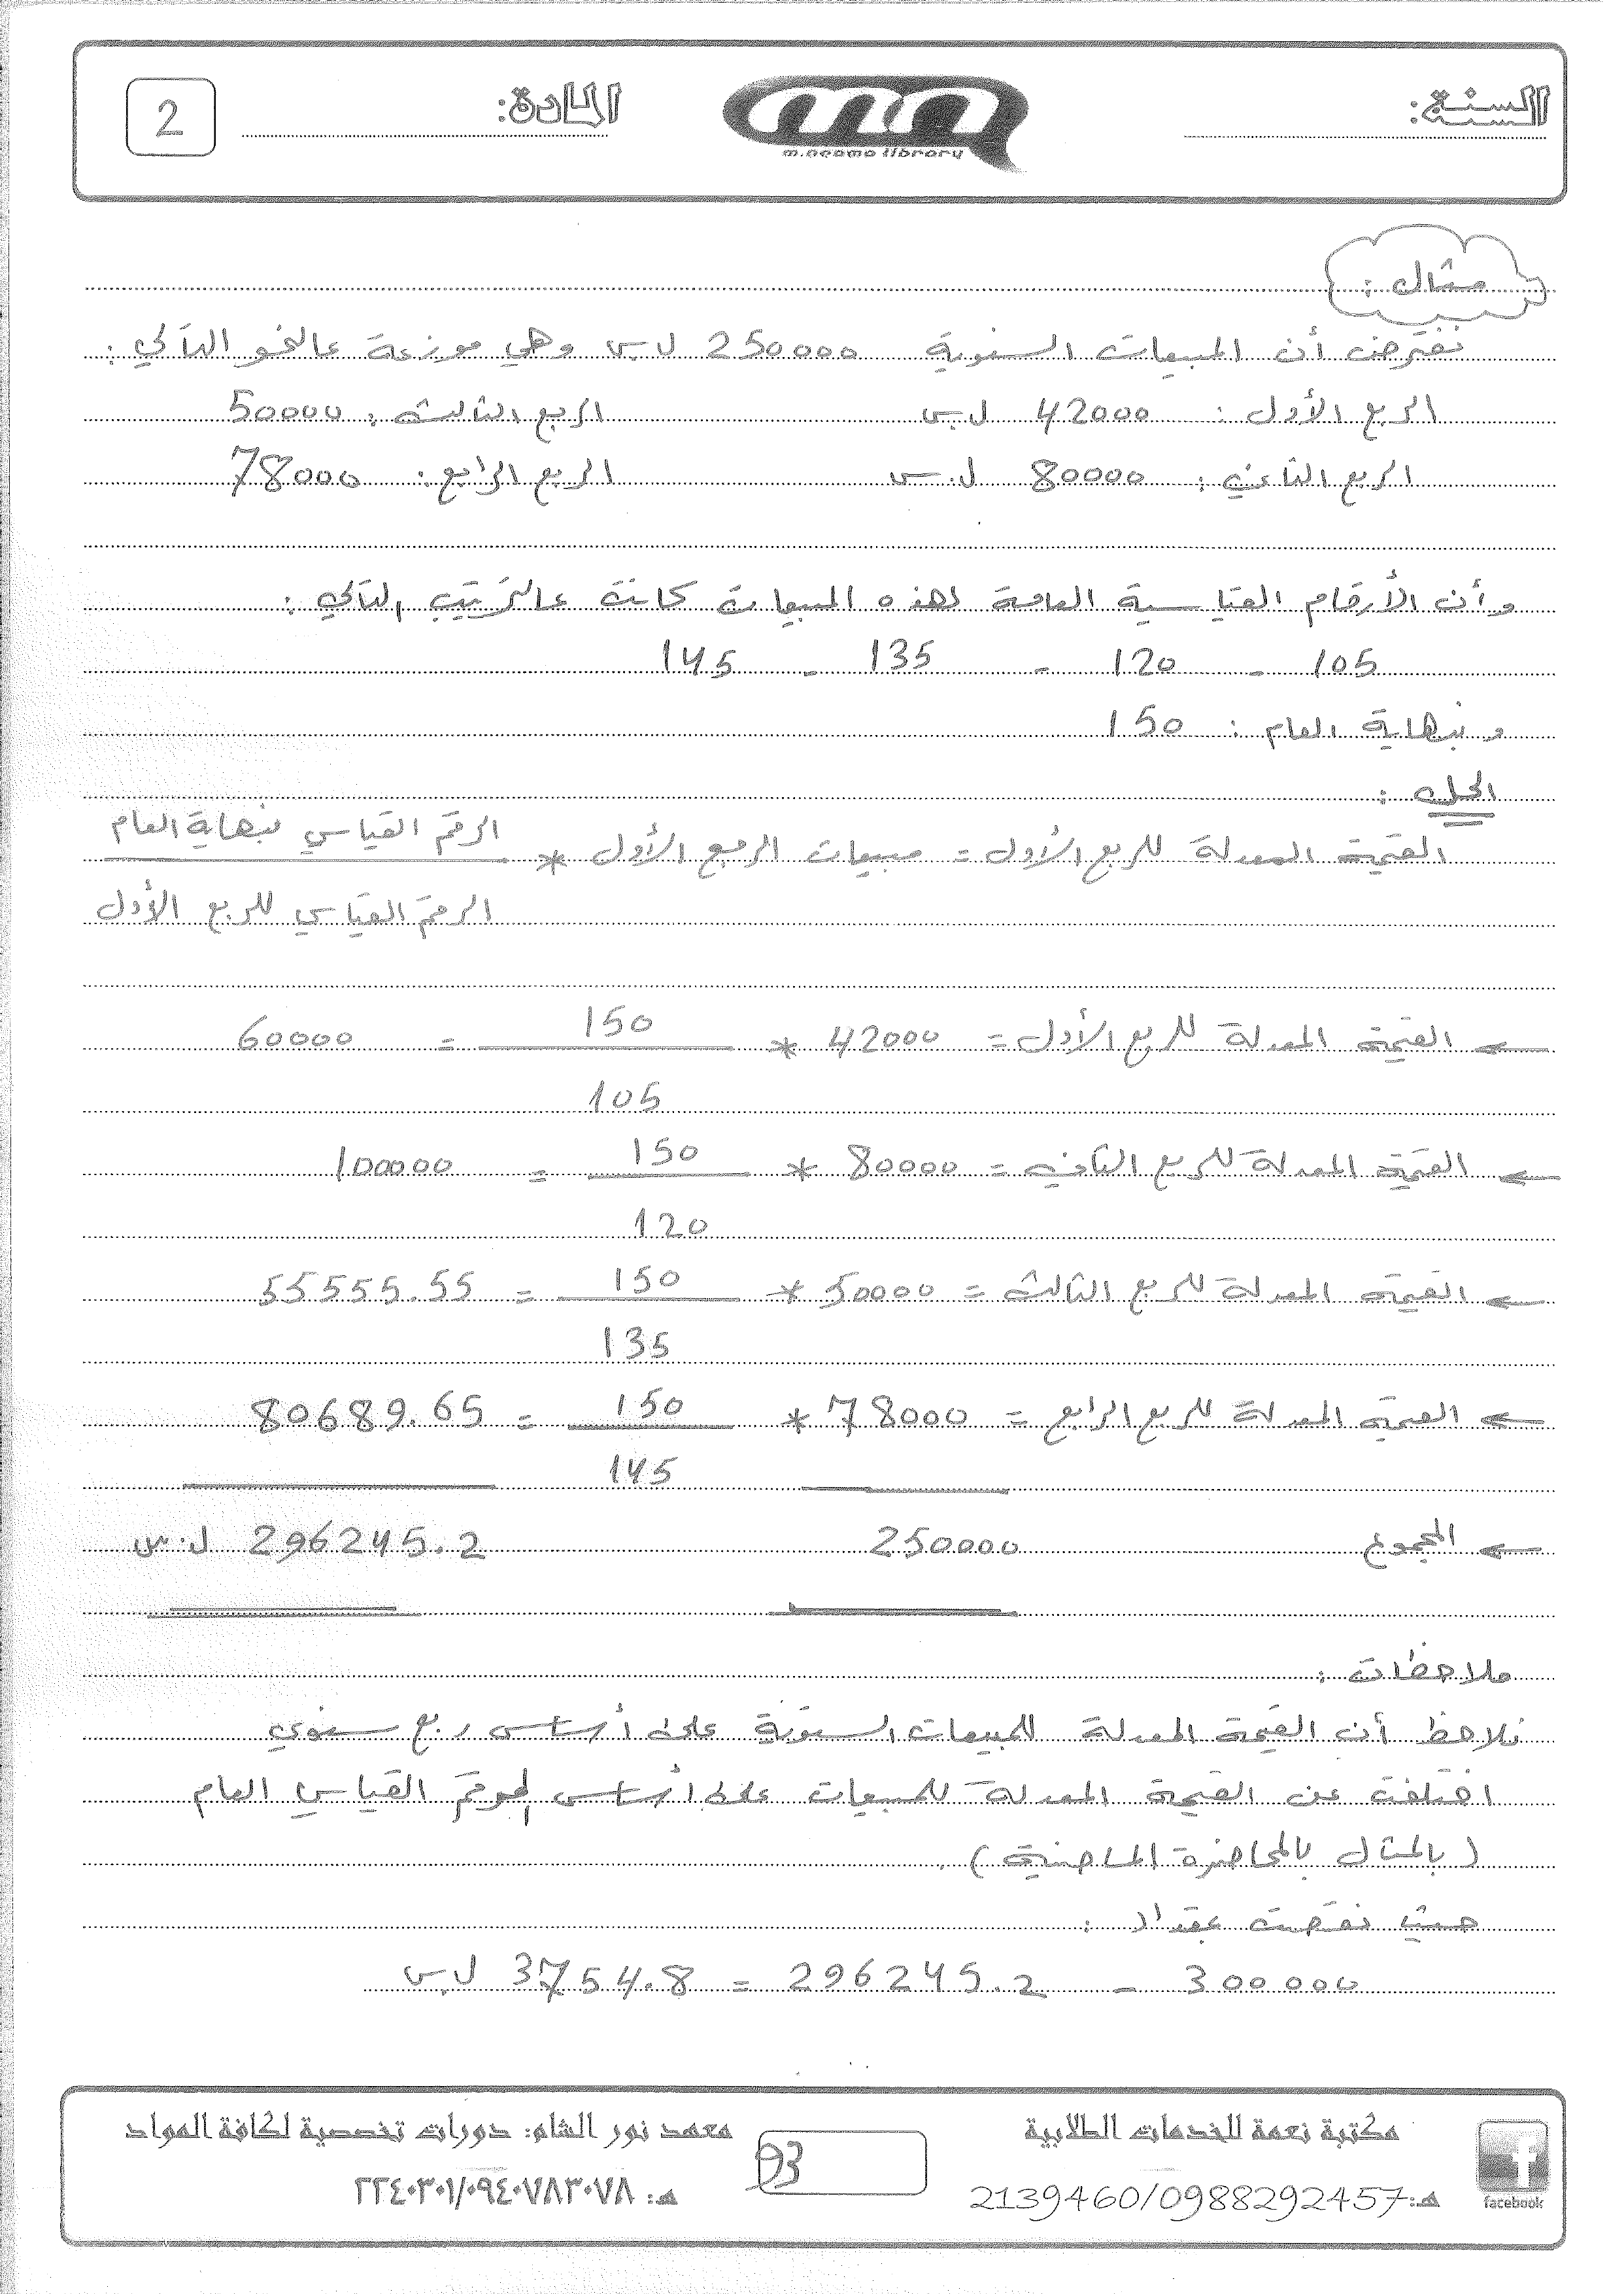 السنة:
m.neama library
المادة:
2
مثال :
نفترض أن المبيعات السنوية 250000 ل.س وهي موزعة عالنحو التالي :
الربع الأول : 42000 ل.س الربع الثالث : 50000
الربع الثاني : 80000 ل.س الربع الرابع : 78000
وأن الأرقام القياسية العامة لهذه المبيعات كانت عالترتيب التالي :
105 - 120 - 135 - 145
و بنهاية العام : 150
الحل :
القيمة المعدلة للربع الأول = مبيعات الربع الأول * الرقم القياسي بنهاية العام
الرقم القياسي للربع الأول
← القيمة المعدلة للربع الأول = 42000 * 150 = 60000
105
← القيمة المعدلة للربع الثاني = 80000 * 150 = 100000
120
← القيمة المعدلة للربع الثالث = 50000 * 150 = 55555.55
135
← القيمة المعدلة للربع الرابع = 78000 * 150 = 80689.65
145
← المجموع 250000 296245.2 ل.س
ملاحظات :
نلاحظ أن القيمة المعدلة للمبيعات السنوية على أساس ربع سنوي
اختلفت عن القيمة المعدلة للمبيعات على أساس الرقم القياسي العام
( بالمثال بالمحاضرة الماضية ) .
حيث نقصت بمقدار :
300000 - 296245.2 = 3754.8 ل.س
facebook
مكتبة نعمة للخدمات الطلابية
هـ: 2139460/0988292457
93
معهد نور الشام: دورات تخصصية لكافة المواد
هـ: ٢٢٤٠٣٠١/٠٩٤٠٧٨٣٠٧٨